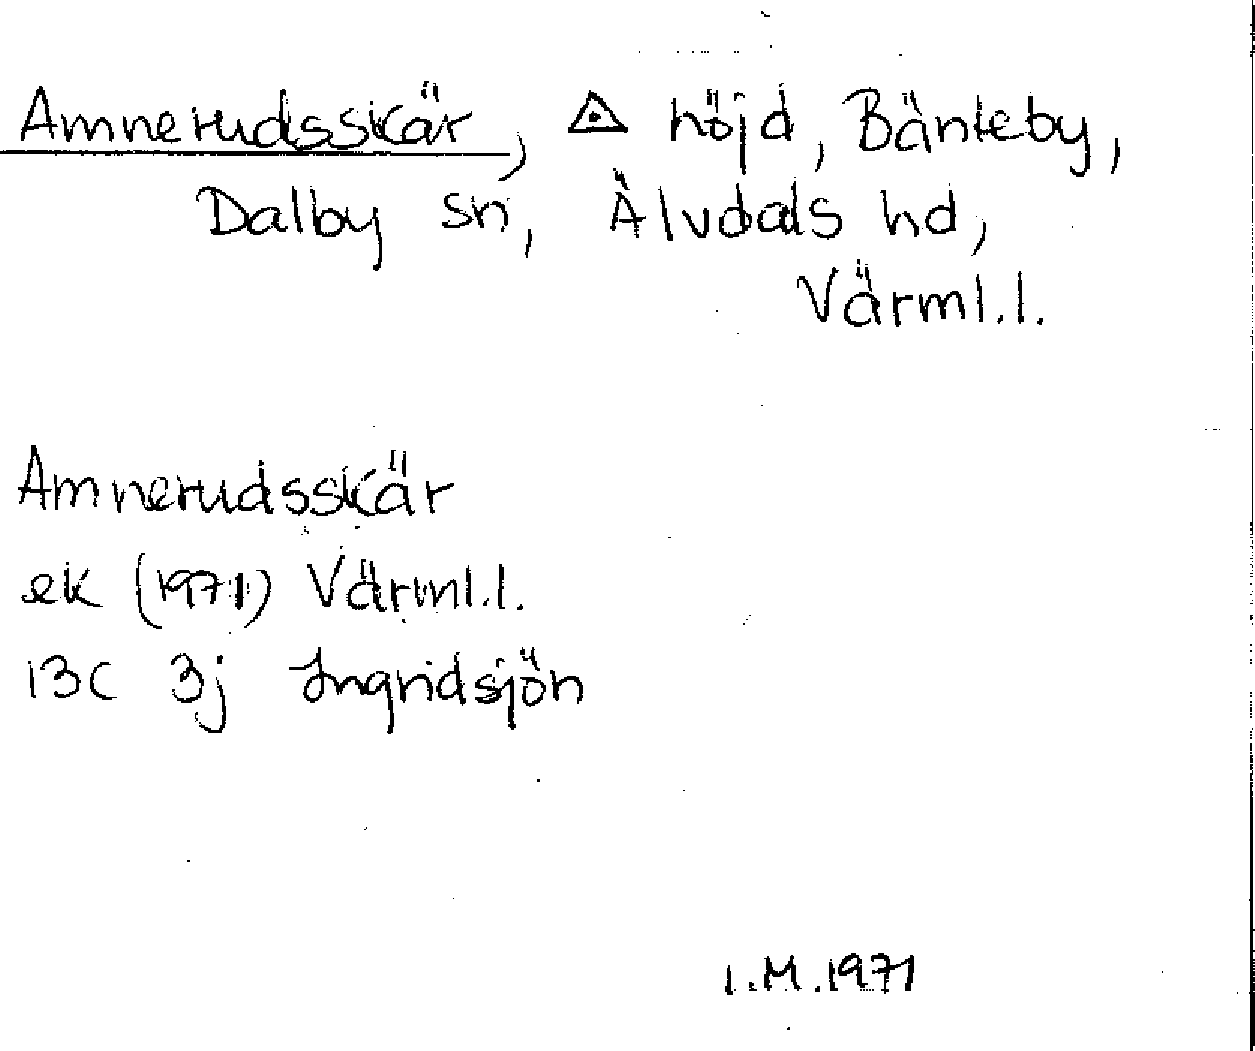 Amnerudsskär, höjd, Bänteby,
Dalby sn, Älvdals hd,
Värml.l.
Amnerudsskär
ek (1971) Värml.l.
13C 3j Ingridsjön
I.M.1971